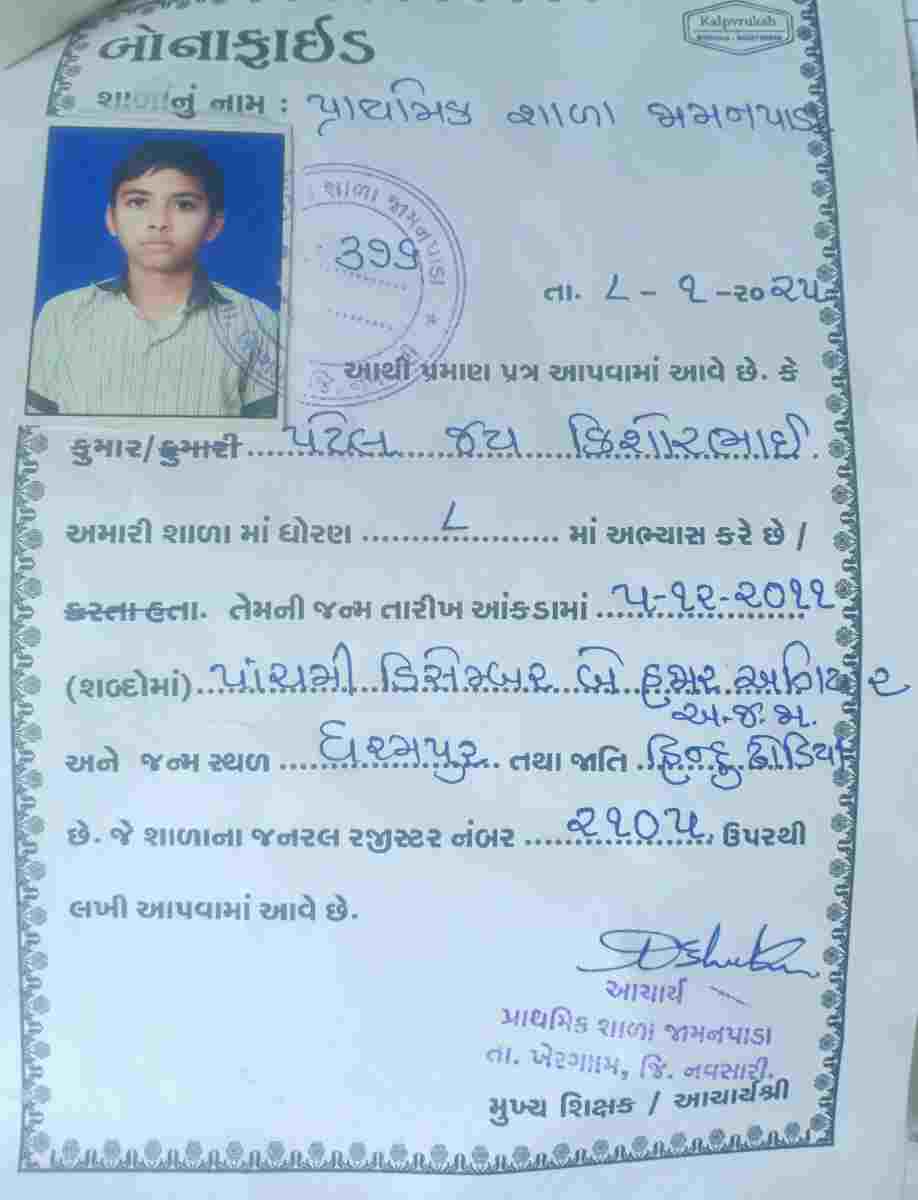 Kalpvruksh
બોનાફાઈડ
શાળાનું નામ : પ્રાથમિક શાળા જામનપાડા
શાળા જામનપાડા *
૩૧૧
તા. ૮ - ૧ -૨૦૨૫
આથી પ્રમાણ પત્ર આપવામાં આવે છે. કે
કુમાર/કુમારી પટેલ જય કિશોરભાઈ.
અમારી શાળા માં ધોરણ ૮ માં અભ્યાસ કરે છે /
કરતા હતા. તેમની જન્મ તારીખ આંકડામાં ૫-૧૨-૨૦૧૧
(શબ્દોમાં) પાંચમી ડિસેમ્બર બે હજાર અગિયાર
અ.જ.જા.
અને જન્મ સ્થળ ધરમપુર તથા જાતિ હિન્દુ ઢોડિયા
છે. જે શાળાના જનરલ રજીસ્ટર નંબર ૨૧૦૫ ઉપરથી
લખી આપવામાં આવે છે.
આચાર્ય
પ્રાથમિક શાળા જામનપાડા
તા. ખેરગામ, જિ. નવસારી.
મુખ્ય શિક્ષક / આચાર્યશ્રી